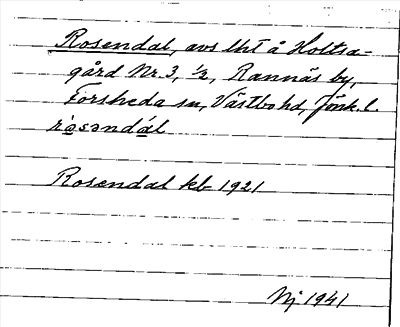 Rosendal, avs lht å Holtsa-
gård Nr. 3, ½, Rannäs by,
Forsheda sn, Västbo hd, Jönk. l.
ròsəndál
Rosendal kb 1921
Nj 1941